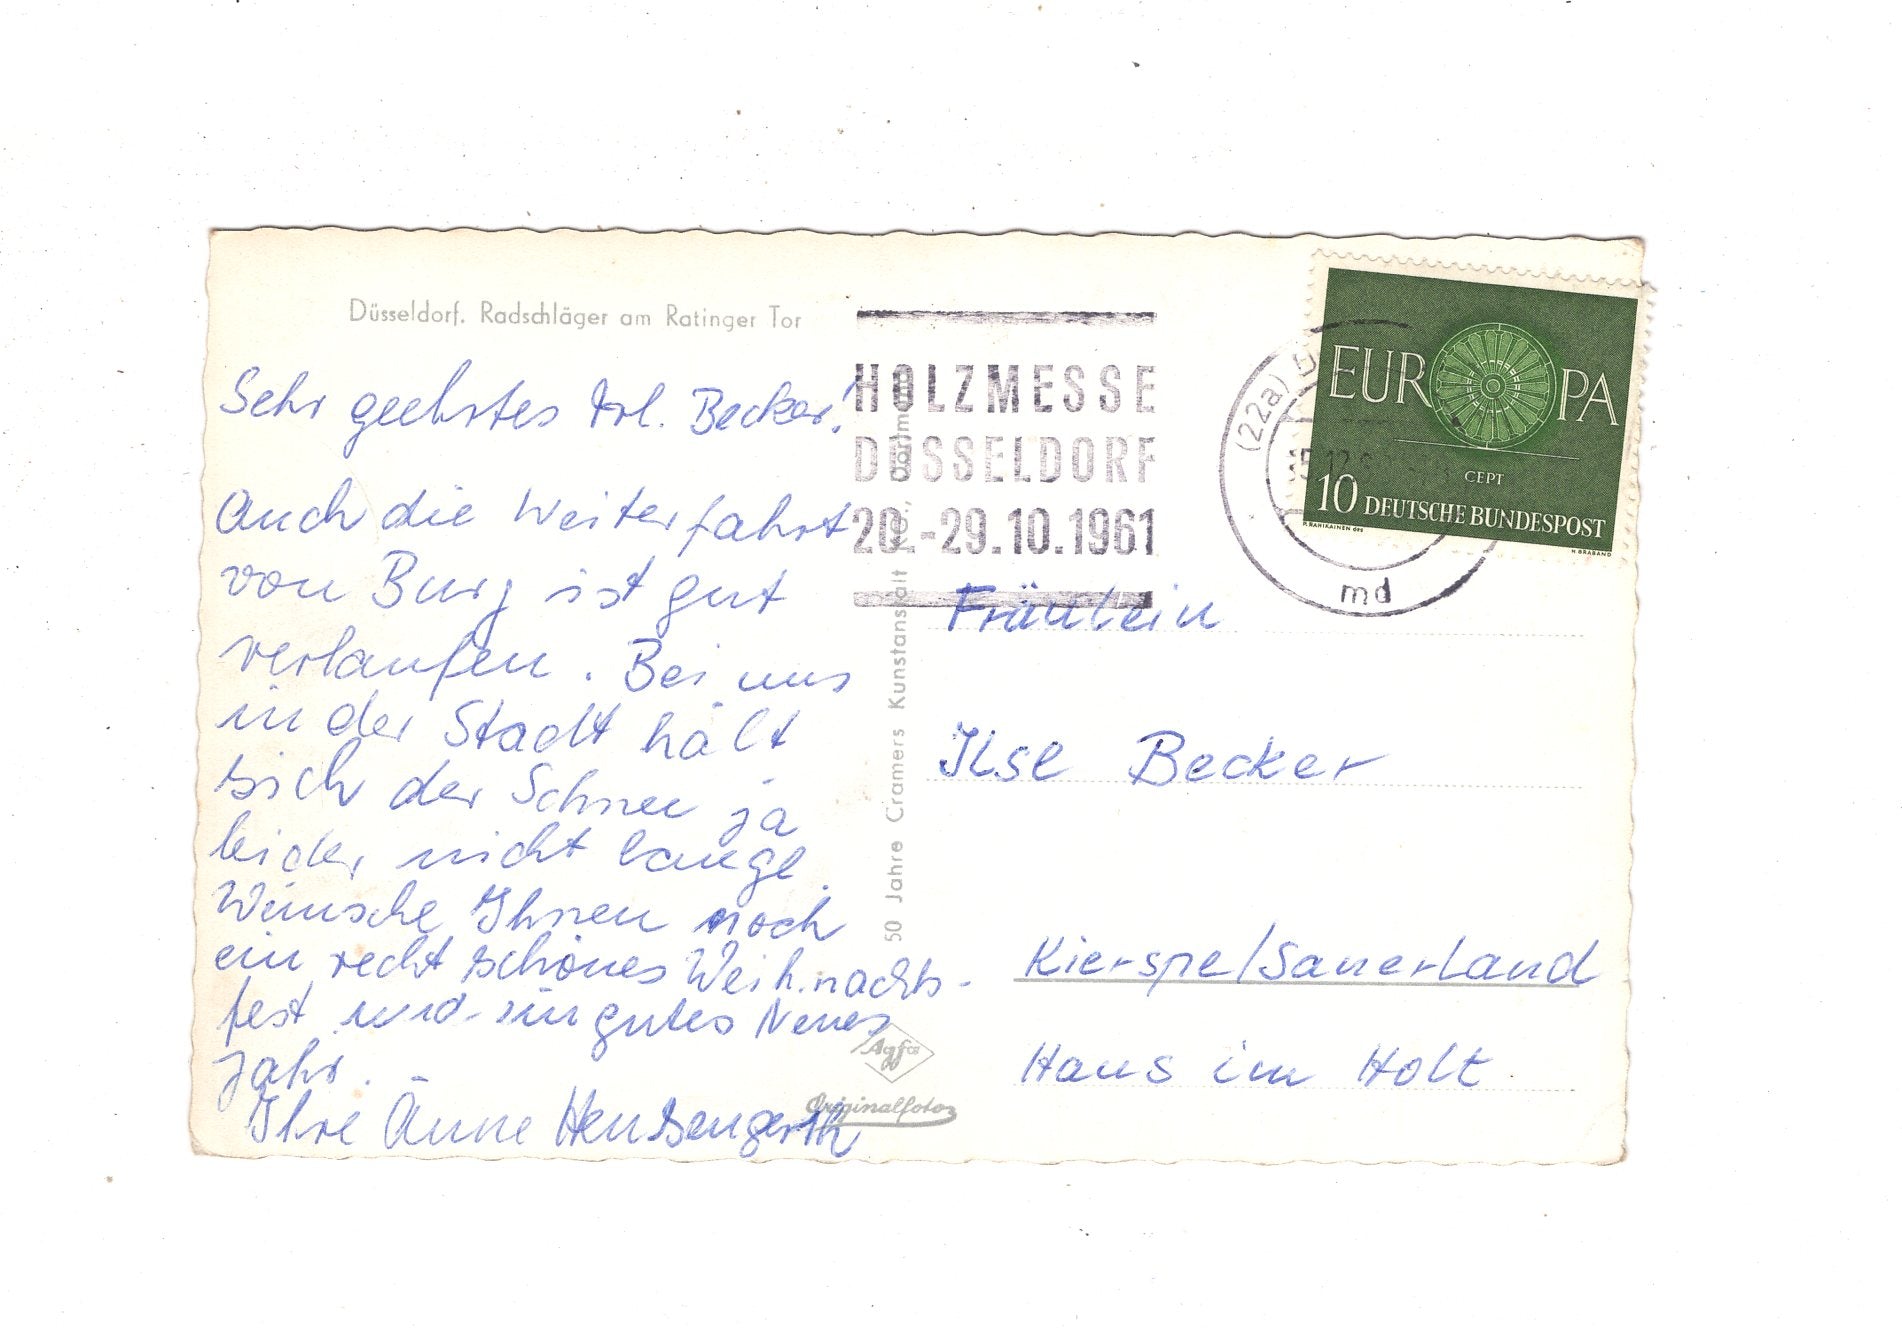 Düsseldorf. Radschläger am Ratinger Tor
Sehr geehrtes Frl. Becker!
Auch die Weiterfahrt
von Burg ist gut
verlaufen. Bei uns
in der Stadt hält
sich der Schnee ja
leider nicht lange.
Wünsche Ihnen noch
ein recht schönes Weihnachts-
fest und ein gutes Neues
Jahr.
Ihre Änne
50 Jahre Cramers Kunstanstalt KG., Dortmund
Agfa
Originalfoto
HOLZMESSE
DÜSSELDORF
20.-29.10.1961
(22a) D
md
EUROPA
CEPT
10 DEUTSCHE BUNDESPOST
P. RAHIKAINEN des
H. BRABAND
Fräulein
Ilse Becker
Kierspe/Sauerland
Haus im Holt